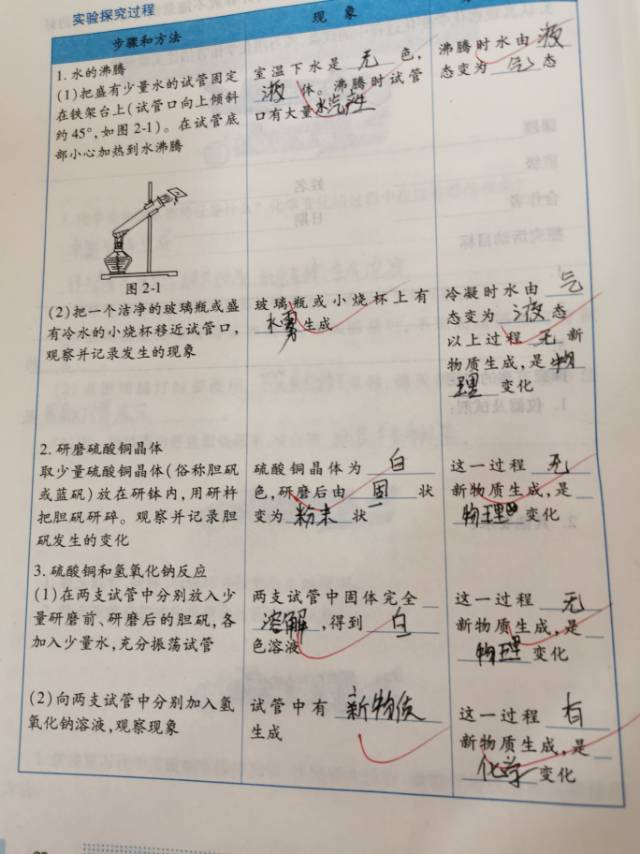 实验探究过程
步骤和方法
现 象
1. 水的沸腾
(1)把盛有少量水的试管固定
在铁架台上(试管口向上倾斜
约45°,如图2-1)。在试管底
部小心加热到水沸腾
室温下水是 无 色,
液 体。沸腾时试管
口有大量水汽产生
沸腾时水由 液
态变为 气 态
图 2-1
(2)把一个洁净的玻璃瓶或盛
有冷水的小烧杯移近试管口,
观察并记录发生的现象
玻璃瓶或小烧杯上有
水雾生成
冷凝时水由 气
态变为 液 态
以上过程 无 新
物质生成,是 物
理 变化
2. 研磨硫酸铜晶体
取少量硫酸铜晶体(俗称胆矾
或蓝矾)放在研钵内,用研杵
把胆矾研碎。观察并记录胆
矾发生的变化
硫酸铜晶体为 白
色,研磨后由 固 状
变为 粉末 状
这一过程 无
新物质生成,是
物理 变化
3. 硫酸铜和氢氧化钠反应
(1)在两支试管中分别放入少
量研磨前、研磨后的胆矾,各
加入少量水,充分振荡试管
两支试管中固体完全
溶解 ,得到 白
色溶液
这一过程 无
新物质生成,是
物理 变化
(2)向两支试管中分别加入氢
氧化钠溶液,观察现象
试管中有 新物质
生成
这一过程 有
新物质生成,是
化学 变化